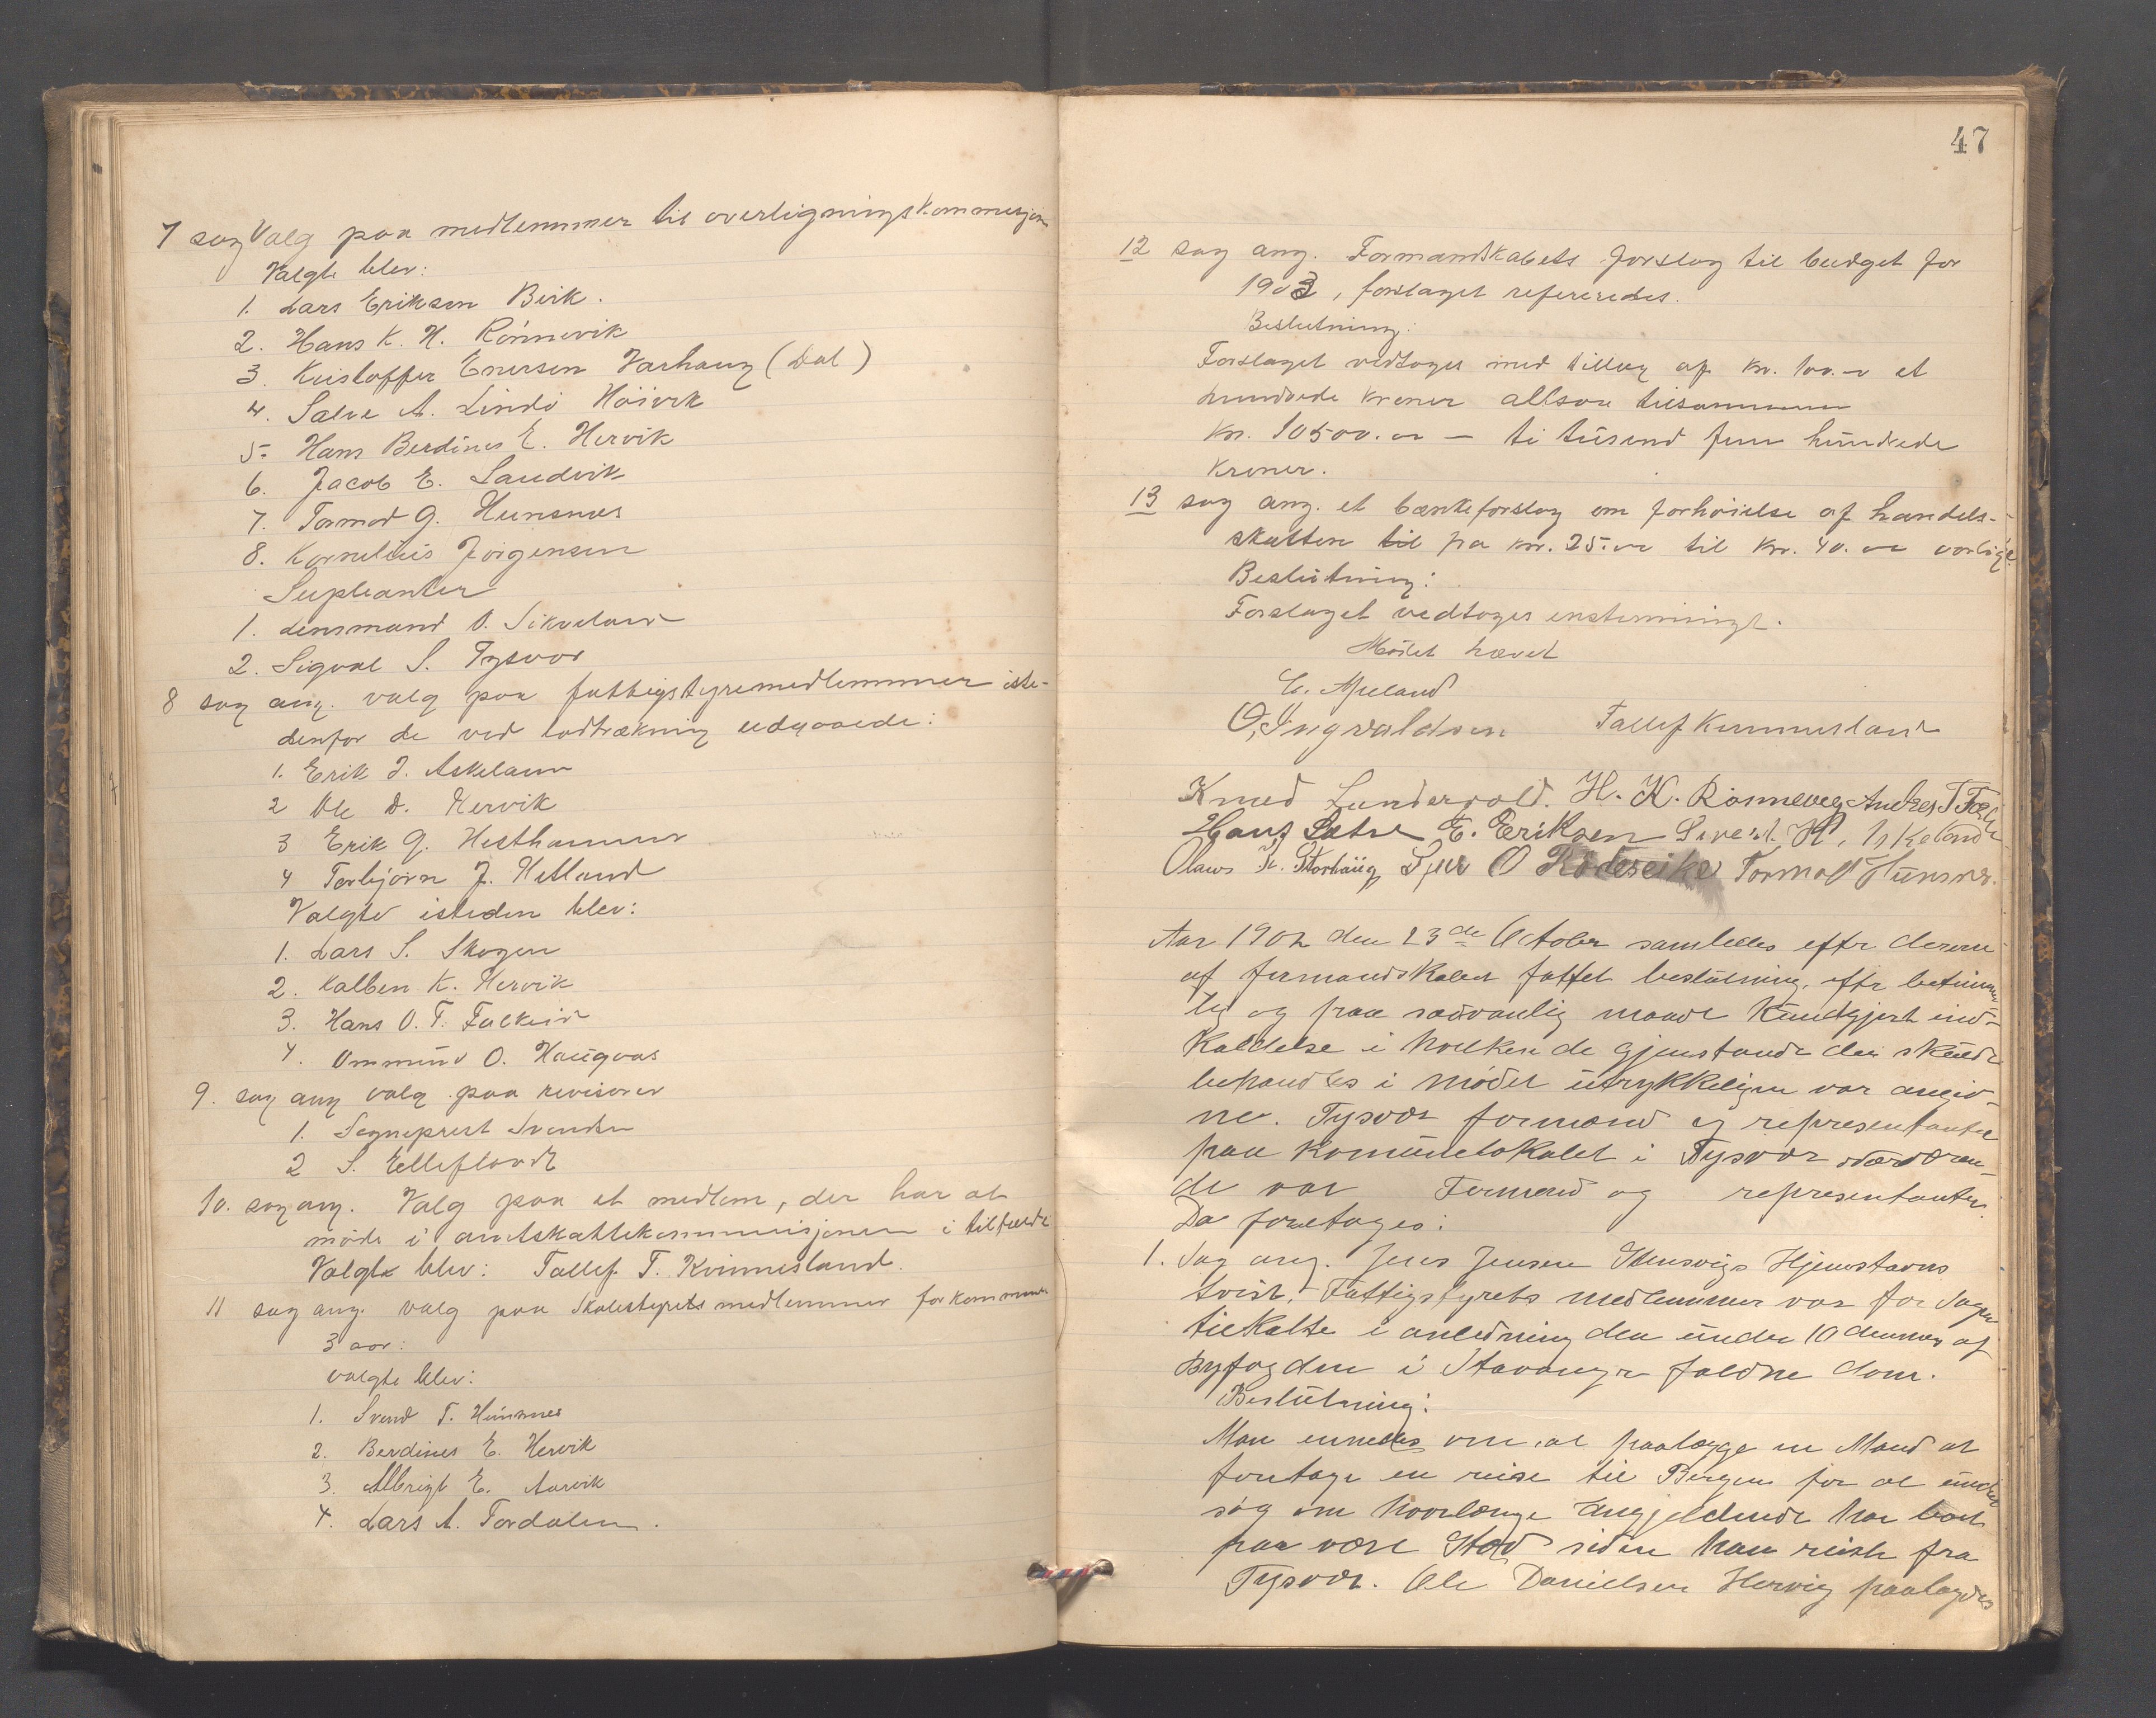 7 sag Valg paa medlemmer til overligningskommisjon
Valgte blev:
1. Lars Eriksen Birk.
2. Hans K. H. Rönnevik
3. Kristoffer Enersen Varhaug (Dal)
4. Salve A. Lindö Höievik
5. Hans Berdines E. Hervik
6. Jacob E. Sandvik
7. Tormod G. Hunsnes
8. Kornelius Jörgensen
Supleanter
1. Lensmand O. Sikveland
2. Sigval S. Tysvær
8 sag ang. valg paa fattigstyremedlemmer iste-
denfor de ved lodtrækning udgaaede:
1. Erik J. Askeland
2 Ole D. Hervik
3 Erik G. Hesthammer
4 Torbjörn J. Hetland
Valgte isteden blev:
1. Lars S. Skogen
2. Kolben K. Hervik
3. Hans O. T. Falkeid
4. Ommund O. Haugvas
9. sag ang valg paa revisorer
1. Sogneprest Svendsen
2 S. Elleflordt
10. sag ang. Valg paa et medlem, der har at
möde i amtskattekommisjonen i tilfælde
Valgte blev: Tollef T. Kvinnesland.
11 sag ang. valg paa Skolestyrets medlemmer for kommende
3 aar:
valgte blev:
1. Svend T. Hunsnes
2. Berdines E. Hervik
3. Albrigt E. Aarvik
4. Lars A. Fordalen.
47
12 sag ang. Formandskabets forslag til budget for
1903, forslaget refereredes.
Beslutning:
Forslaget vedtoges med tillæg af kr. 100.- et
hundrede kroner altsaa tilsammen
kr. 10500.00 — ti tusend fem hundrede
kroner.
13 sag ang. et bænkeforslag om forhöielse af handels-
skatten til fra kr. 25.00 til kr. 40.00 aarlig.
Beslutning:
Forslaget vedtoges enstemmigt.
Mödet hævet
C. Apeland
O, Ingvaldsen Tallef Kvinnesland
Knud Lundervold. H. K. Rönnevig Andres T
Hans Sætre E. Eriksen Sivert H. Askeland
Olaus K. Storhäug O Rödseike Tormod Hunsnes.
Aar 1902 den 23de October samledes efter derom
af formandskabet fattet beslutning, efter betimme
lig og paa sædvanlig maade kundgjort ind-
kaldelse i hvilken de gjenstande der skulde
behandles i mödet udtrykkeligen var angiv-
ne. Tysvær formænd og representanter
paa komunelokalet i Tysvær Nærværen-
de var Formænd og representanter.
Da foretoges:
1. Sag ang. Jens Jensen Stensvigs Hjemstavns
tvist. Fattigstyrets medlemmer var for Sagen
tilkaldte i anledning den under 10 dennes af
Byfogden i Stavanger faldne dom.
Beslutning:
Man enedes om, at paalægge en Mand at
foretage en reise til Bergen for at under
søg om hvorlænge angjeldende har boet
paa være Stad siden han reiste fra
Tysvær. Ole Danielsen Hervig paalagdes